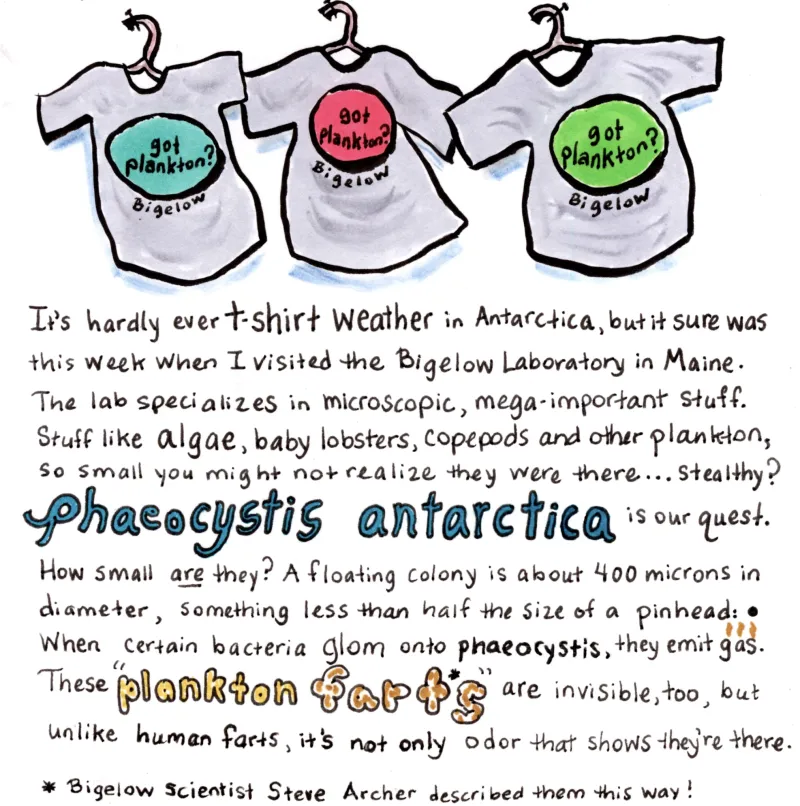 got
plankton?
Bigelow
got
plankton?
Bigelow
got
plankton?
Bigelow
It's hardly ever t-shirt weather in Antarctica, but it sure was
this week when I visited the Bigelow Laboratory in Maine.
The lab specializes in microscopic, mega-important stuff.
Stuff like algae, baby lobsters, copepods and other plankton,
so small you might not realize they were there... stealthy?
phaeocystis antarctica is our quest.
How small are they? A floating colony is about 400 microns in
diameter, something less than half the size of a pinhead: •
When certain bacteria glom onto phaeocystis, they emit gas.
These "plankton farts*" are invisible, too, but
unlike human farts, it's not only odor that shows they're there.
* Bigelow scientist Steve Archer described them this way!